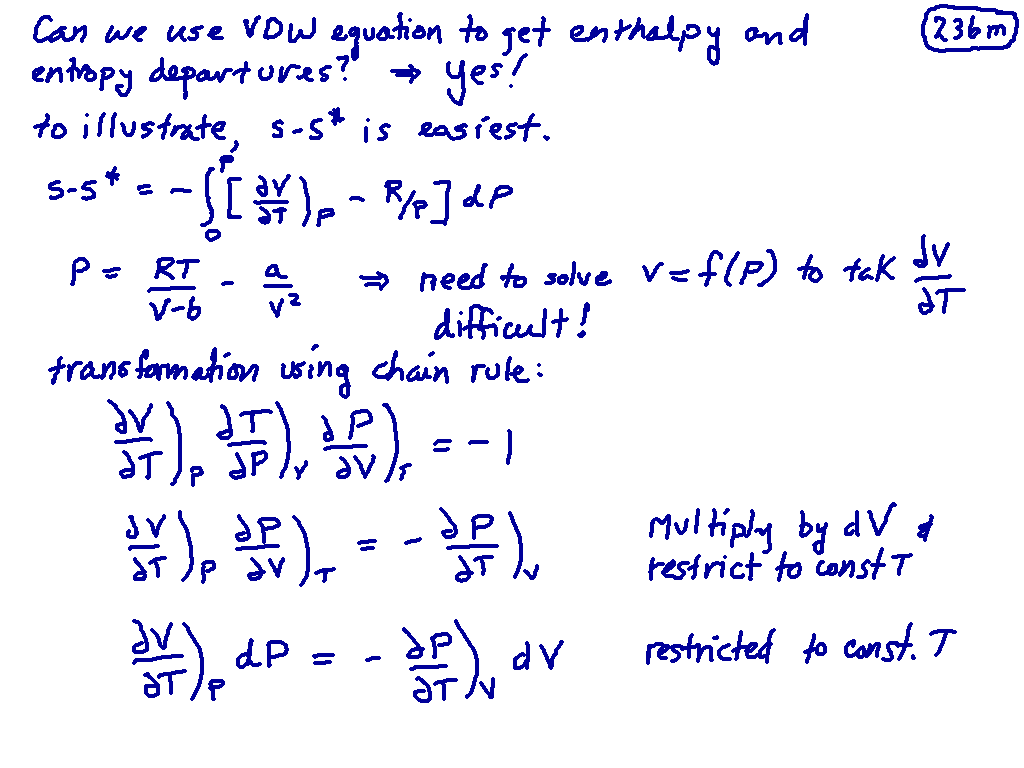 Can we use VDW equation to get enthalpy and (236m)
entropy departures? ⇒ yes!
to illustrate, s-s* is easiest.
s-s* = -∫₀ᴾ [ ∂V/∂T )_P - R/P ] dP
P = RT/(V-b) - a/V² ⇒ need to solve V = f(P) to tak ∂V/∂T
difficult!
transformation using chain rule:
∂V/∂T )_P ∂T/∂P )_V ∂P/∂V )_T = -1
∂V/∂T )_P ∂P/∂V )_T = - ∂P/∂T )_V Multiply by dV &
restrict to const T
∂V/∂T )_P dP = - ∂P/∂T )_V dV restricted to const. T